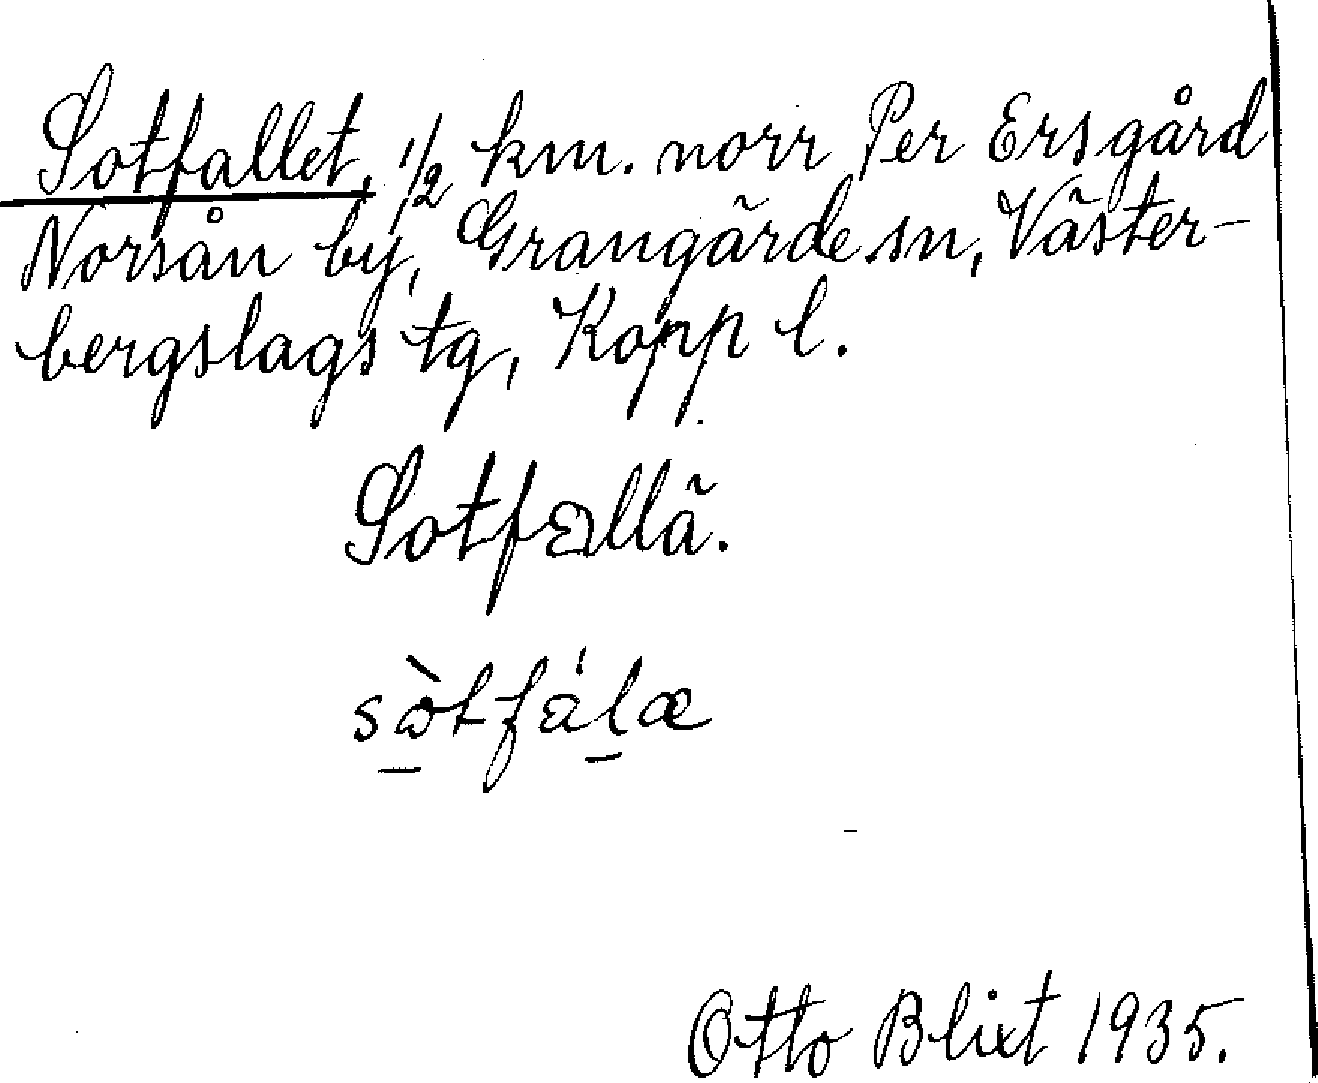 Sotfallet, 1/2 km. norr Per Ersgård
Norsån by, Grangärde sn, Väster-
bergslags tg, Kopp l.
Sotfallä.
Otto Blixt 1935.